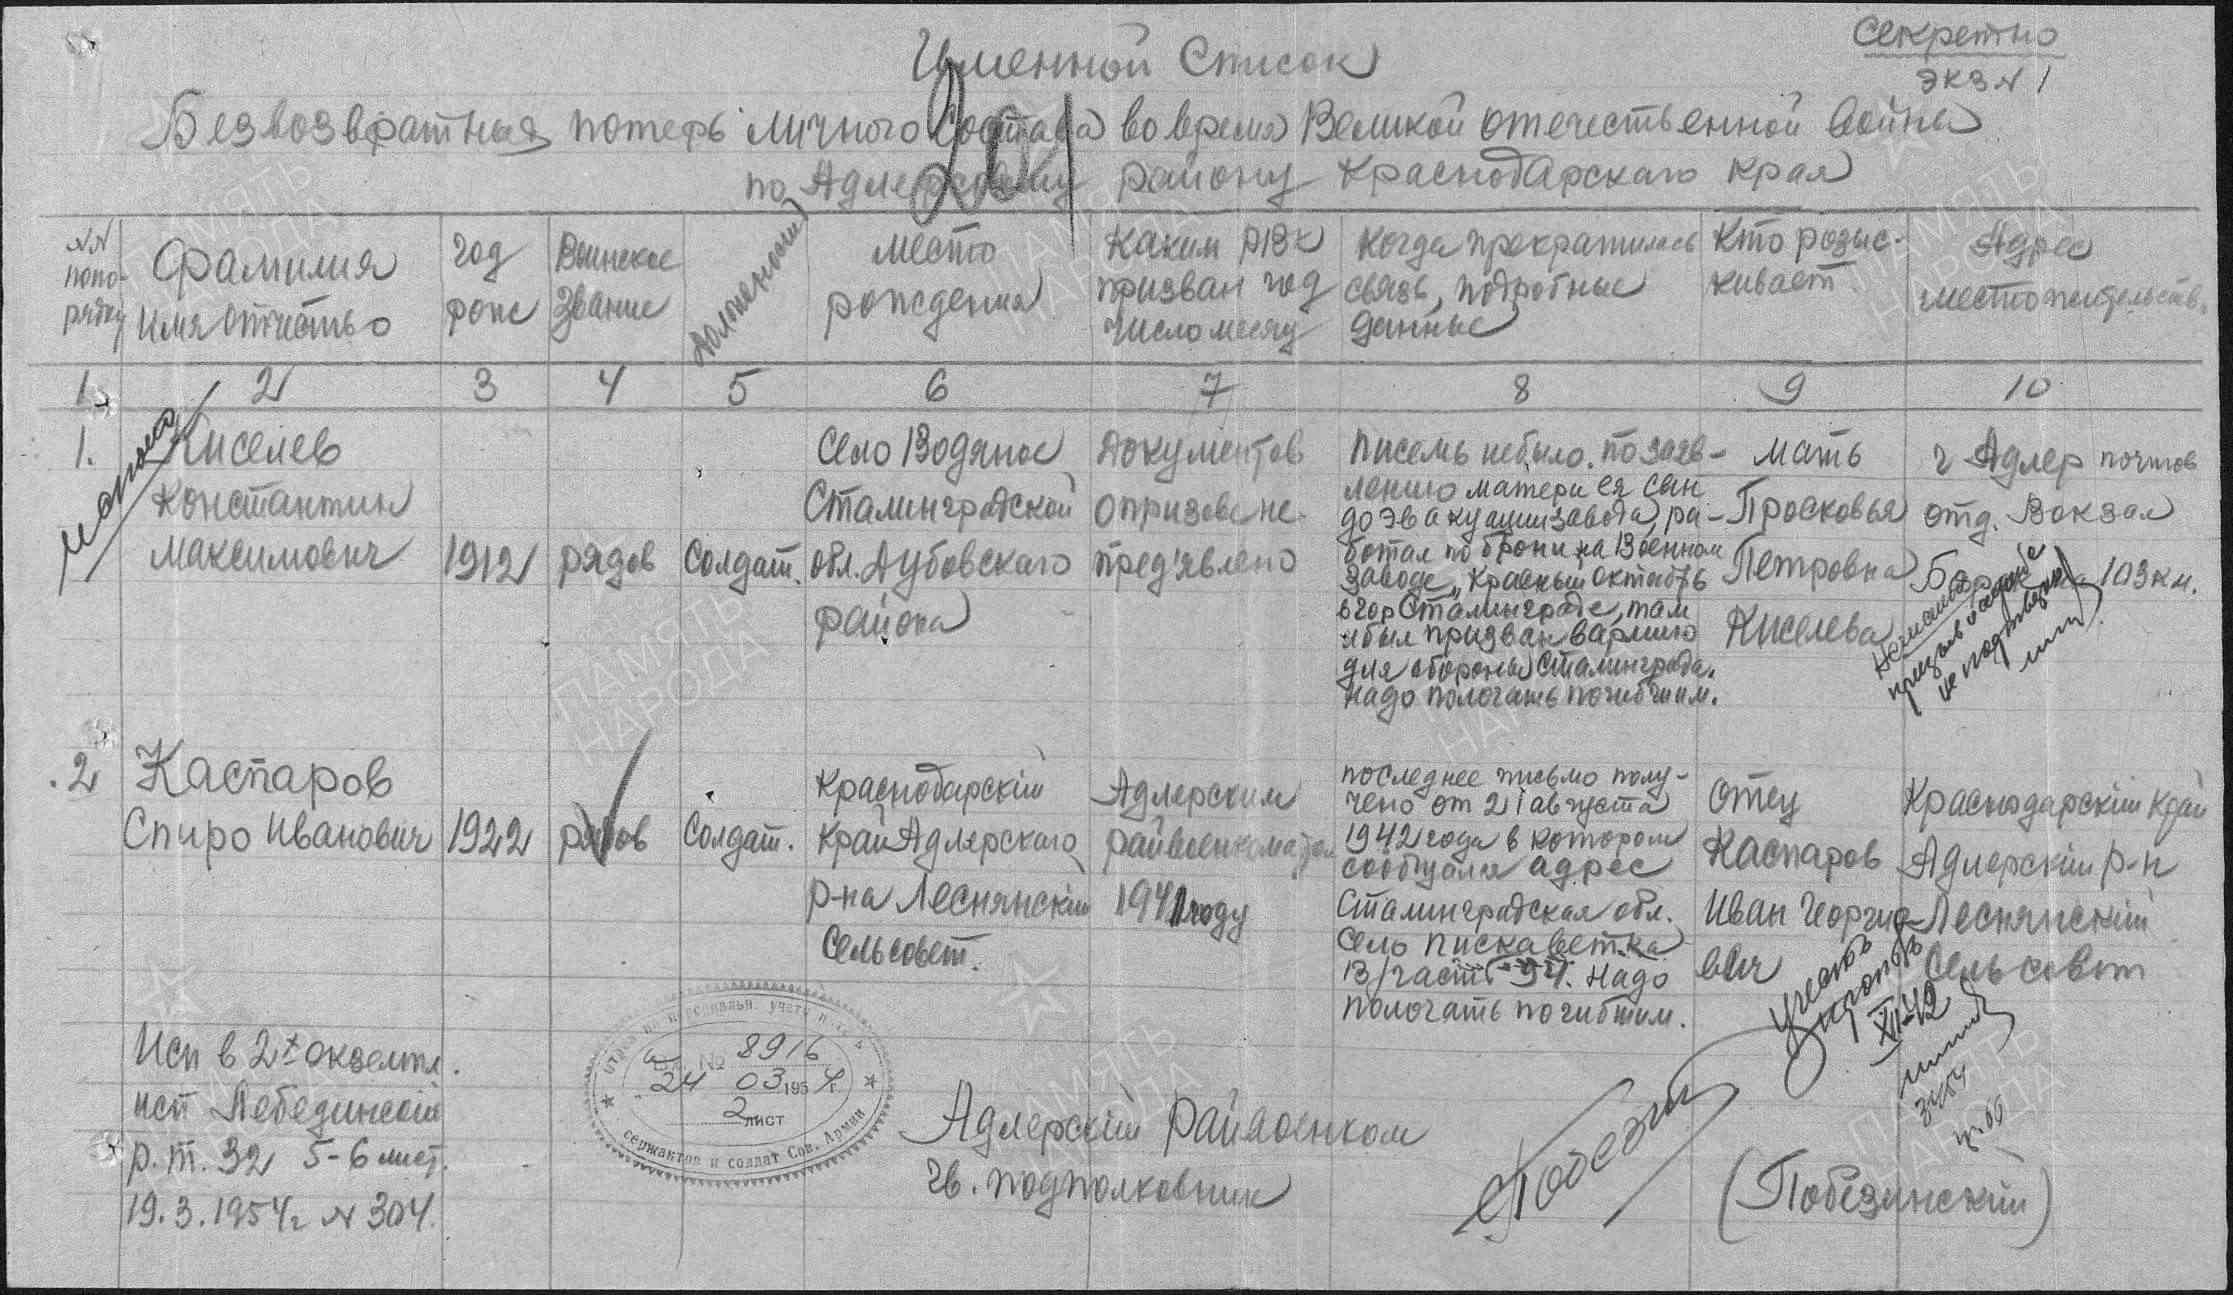 Секретно
экз N 1
Именной Список
Безвозвратная потерь личного состава во время Великой отечественной война
по Адлерскому району Краснодарскаго края
NN попо-рядку
Фамилия Имя Отчество
год рожс
Воинское звание
должность
место рождения
каким РВК призван год число месяц
Когда прекратилась связь, подробные данные
Кто розыс-кивает.
Адрес местожительств.
1 2 3 4 5 6 7 8 9 10
1.
Киселев
Константин
Максимович
1912
рядов
Солдат.
Село Водяное
Сталинградской
обл. Дубовскаго
района
Документов
опризове не
пред'явлено
писемь небыло. по заяв-
лению матери ея сын
до эвакуации завода, ра-
ботал по брони на Военном
заводе „Красный октябть
в гор Сталинграде, там
и был призван в армию
для обороны Сталинграда.
надо пологать погибшим.
мать
Просковья
Петровна
Киселева
г Адлер почтов
отд. Вокзал
103 км.
призыв
не подтвержд
2
Каспаров
Спиро Иванович
1922
рядов
Солдат.
Краснодарскій
край Адлерскаго
р-на Леснянскій
Сельсовет.
Адлерским
райвоенкоматом
1941 году
последнее письмо полу-
чено от 21 августа
1942 года в котором
сообщался адрес
Сталинградская обл.
село Пискаветка
В/часть 94. Надо
пологать погибшим.
отец
Каспаров
Иван Георгие
вич
Краснодарскій край
Адлерскій р-н
Леснянскій
Сельсовет
учесть
XII-42
Исп в 2х экземпл.
исп Лебединскій
р.т. 32 5-6 лист.
19.3.1954г N 304.
персональн. учету
Вх. №
8916
24 03 1954г.
2 лист
сержантов и солдат Сов. Армии
Адлерскій Райвоенком
гв. подполковник
(Побезинскій)